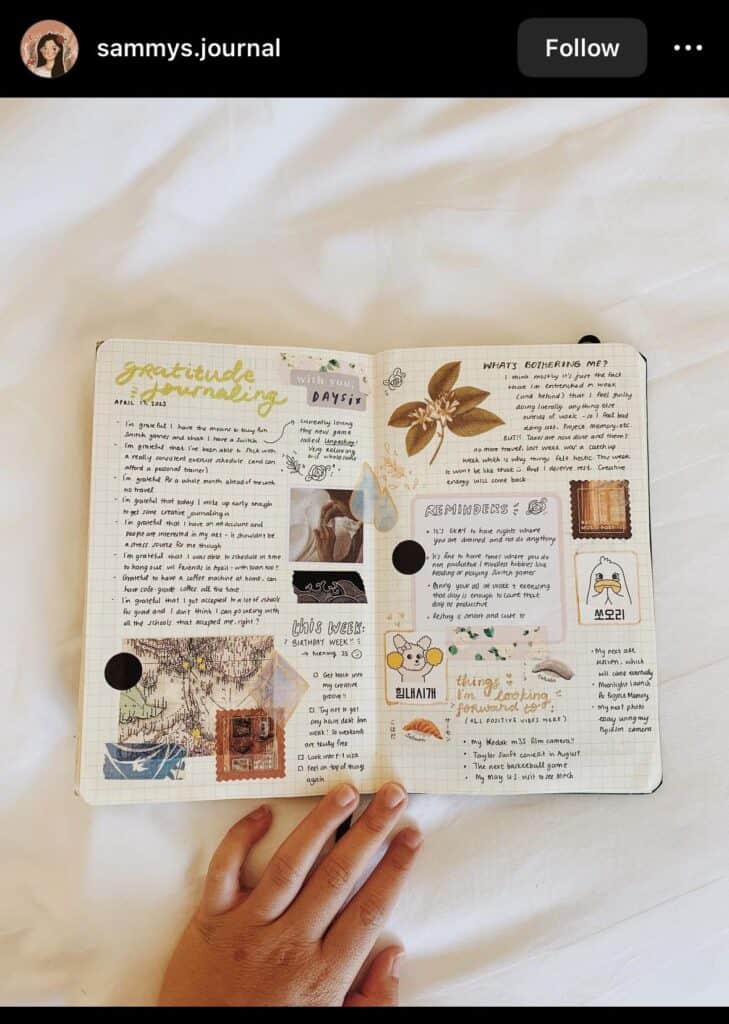 sammys.journal
Follow
gratitude
journaling
APRIL 17, 2023
with you,
DAYSix
- I'm grateful I have the means to buy fun
Switch games and that I have a Switch
- I'm grateful that I've been able to stick with
a really consistent exercise schedule (and can
afford a personal trainer)
- I'm grateful for a whole month ahead of me with
no travel
- I'm grateful that today I woke up early enough
to get some creative journaling in
- I'm grateful that I have an art account and
people are interested in my art - it shouldn't be
a stress source for me though
- I'm grateful that I was able to schedule in time
to hang out w/ friends in April - with Soon too!
- Grateful to have a coffee machine at home, can
have cafe-grade coffee all the time
- I'm grateful that I got accepted to a lot of schools
for grad and I don't think I can go wrong with
all the schools that accepted me, right?
currently loving
the new game
called Unpacking!
Very relaxing
and wholesome
this week:
BIRTHDAY WEEK!!
→ turning 25
□ Get back into
my creative
groove!!
□ Try not to get
any more debt for
week! So weekends
are totally free
□ Look over
□ Feel on top of things
again
WHAT'S BOTHERING ME?
I think mostly it's just the fact
that I'm entrenched in work
(and behind) that I feel guilty
doing literally anything else
outside of work - so I feel bad
doing art, Project Memory, etc.
BUT!! Taxes are now done and there's
no more travel. Last week was a catch up
week which is why things felt hectic. This week
it won't be like that and I deserve rest. Creative
energy will come back
REMINDERS
• It's OKAY to have nights where
you are drained and not do anything
• It's fine to have times where you do
non productive / mindless hobbies like
reading or playing Switch games
• Doing your at work + exercising
that day is enough to count that
day as productive
• Resting is smart and cute to
쏘오리
힘내시개
things
I'm looking
forward to:
(ALL POSITIVE VIBES HERE)
• My Kodak m35 film camera!!
• Taylor Swift concert in August
• The next basketball game
• My May U.S. visit to see Mitch
• My next art
session, which
will come eventually
• Moonlight launch
for Project Memory
• My next photo
essay using my
Fujifilm camera